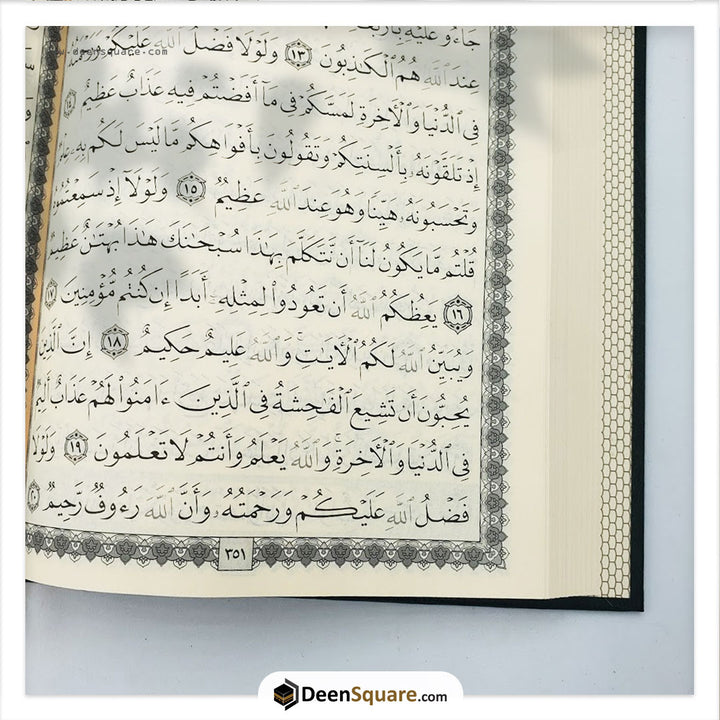 جَآءُو عَلَيْهِ بِأَرْبَعَةِ
عِندَ ٱللَّهِ هُمُ ٱلْكَٰذِبُونَ ١٣ وَلَوْلَا فَضْلُ ٱللَّهِ عَلَيْكُمْ وَرَحْمَتُهُۥ
فِى ٱلدُّنْيَا وَٱلْءَاخِرَةِ لَمَسَّكُمْ فِى مَآ أَفَضْتُمْ فِيهِ عَذَابٌ عَظِيمٌ ١٤
إِذْ تَلَقَّوْنَهُۥ بِأَلْسِنَتِكُمْ وَتَقُولُونَ بِأَفْوَاهِكُم مَّا لَيْسَ لَكُم بِهِۦ
وَتَحْسَبُونَهُۥ هَيِّنًا وَهُوَ عِندَ ٱللَّهِ عَظِيمٌ ١٥ وَلَوْلَآ إِذْ سَمِعْتُمُوهُ
قُلْتُم مَّا يَكُونُ لَنَآ أَن نَّتَكَلَّمَ بِهَٰذَا سُبْحَٰنَكَ هَٰذَا بُهْتَٰنٌ عَظِيمٌ
١٦ يَعِظُكُمُ ٱللَّهُ أَن تَعُودُوا۟ لِمِثْلِهِۦٓ أَبَدًا إِن كُنتُم مُّؤْمِنِينَ ١٧
وَيُبَيِّنُ ٱللَّهُ لَكُمُ ٱلْءَايَٰتِ ۚ وَٱللَّهُ عَلِيمٌ حَكِيمٌ ١٨ إِنَّ ٱلَّذِينَ
يُحِبُّونَ أَن تَشِيعَ ٱلْفَٰحِشَةُ فِى ٱلَّذِينَ ءَامَنُوا۟ لَهُمْ عَذَابٌ أَلِيمٌ
فِى ٱلدُّنْيَا وَٱلْءَاخِرَةِ ۚ وَٱللَّهُ يَعْلَمُ وَأَنتُمْ لَا تَعْلَمُونَ ١٩ وَلَوْلَا
فَضْلُ ٱللَّهِ عَلَيْكُمْ وَرَحْمَتُهُۥ وَأَنَّ ٱللَّهَ رَءُوفٌ رَّحِيمٌ ٢٠
٣٥١
DeenSquare.com